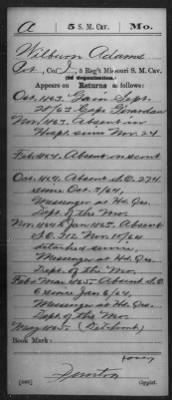 A 5 S. M. Cav. Mo.
Wilburn Adams
Pvt., Co. I, 5 Reg't Missouri S. M. Cav.
(Old organization.)
Appears on Returns as follows:
Oct. 1863, Gain Sept.
25/63 Cape Girardeau
Nov. 1863, Absent in
Hosp. since Nov. 24
Feb. 1864, Absent on scout
Oct. 1864, Absent S.O. 274
since Oct. 3/64,
Messenger at Hd. Qrs.
Dept. of the Mo.
Nov. 1864 & Jan. 1865, Absent
S.O. 312 Nov. 10/64
detached service,
Messenger at Hd. Qrs.
Dept. of the Mo.
Feb. & Mar. 1865 Absent S.O.
6 since Jan. 6/64,
Messenger at Hd. Qrs.
Dept. of the Mo.
May 1865 (Detchmt)
Book Mark:
Morton
Copyist.